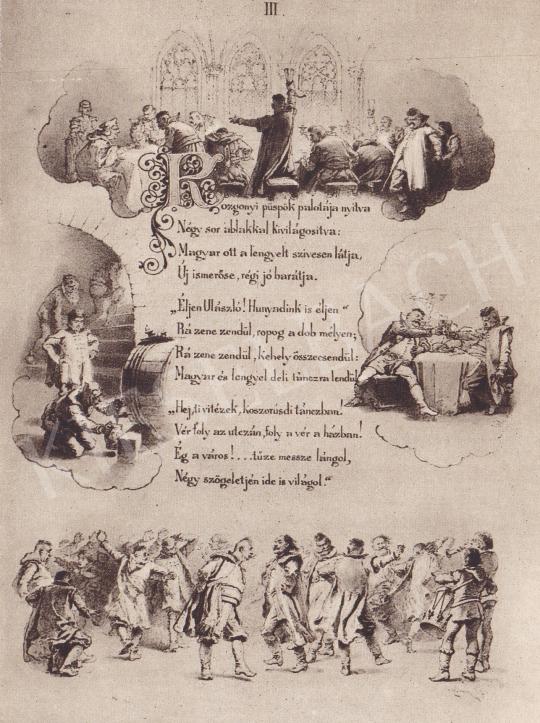 III.
Rozgonyi püspök palotája nyitva
Négy sor ablakkal kivilágositva:
Magyar ott a lengyelt szivesen látja,
Új ismerőse, régi jó barátja.
„Éljen Ulászló! Hunyadink is éljen“
Rá zene zendül, ropog a dob mélyen;
Rá zene zendül, kehely összecsendül:
Magyar és lengyel deli tánczra lendül
„Hej, ti vitézek, koszorusdi tánczban!
Vér foly az utczán, foly a vér a házban!
Ég a város!... tüze messze lángol,
Négy szögeletjén ide is világol.“